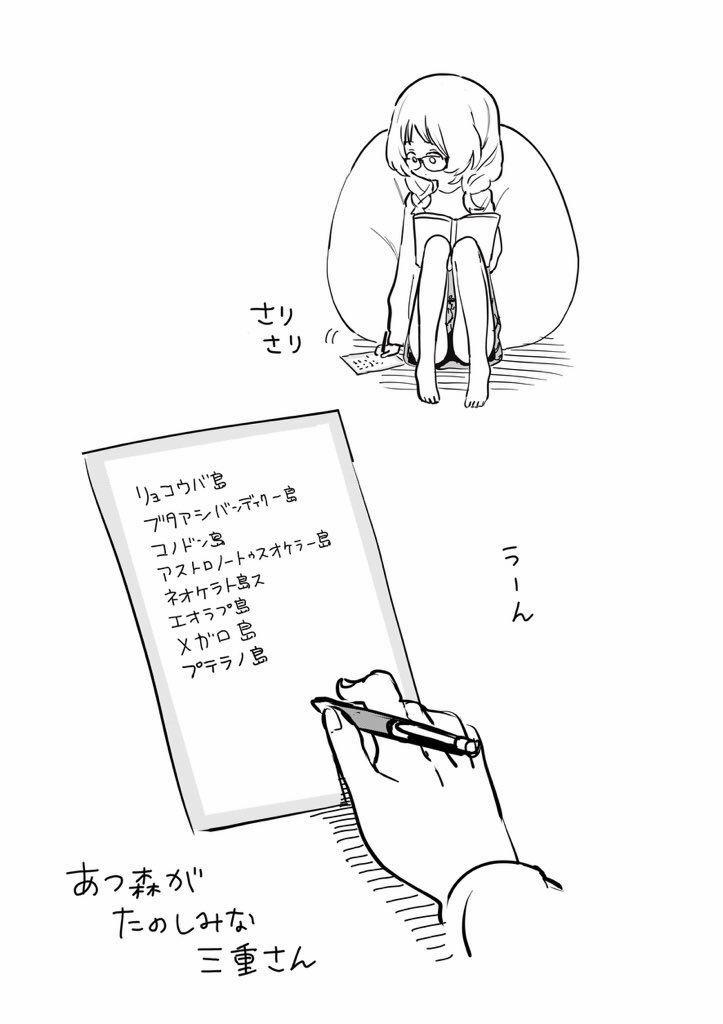 さり
さり
リョコウバ島
ブタアシバンディクー島
コノドン島
アストロノートゥスオケラー島
ネオケラト島ス
エオラプ島
メガロ島
プテラノ島
うーん
あつ森が
たのしみな
三重さん